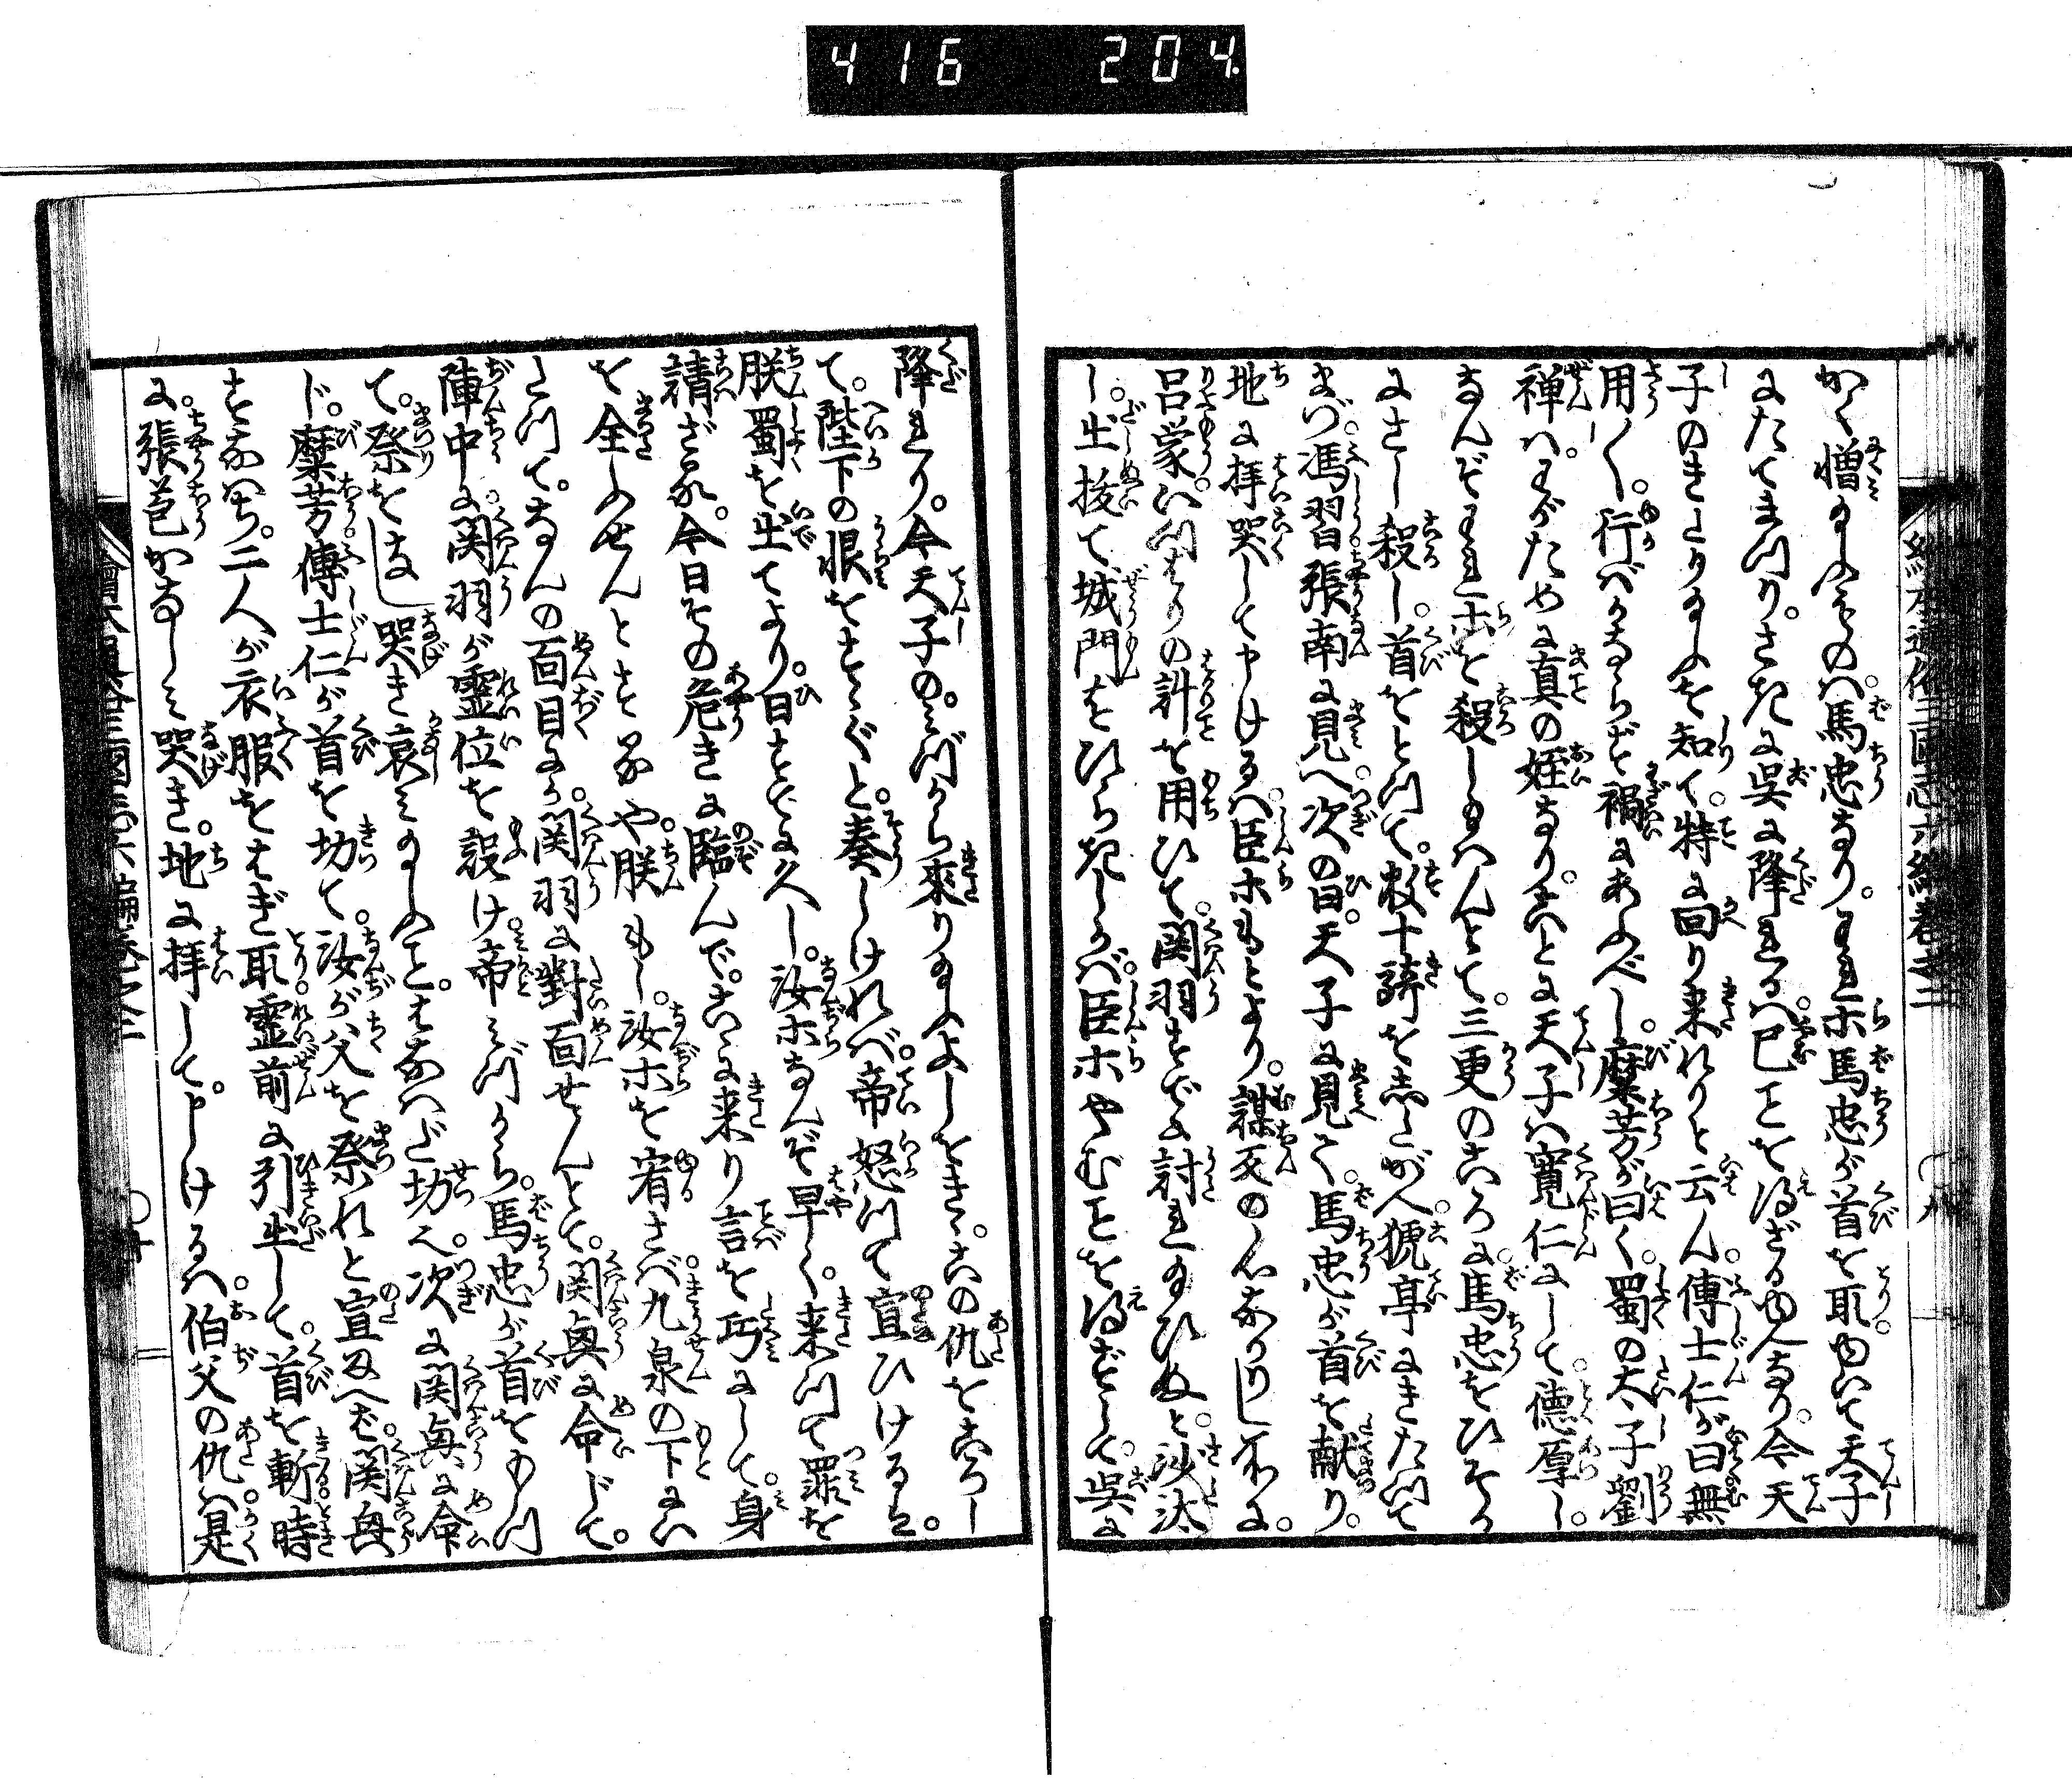 416 204.
かく憎み給ふものは馬忠なり。われホ馬忠が首を取。ゆいて天子
にたてまつり。さきに呉に降れるは。已ことを得ざるゆへなり。今天
子のきたり給ふを知て。特に回り来れりと云ん。傅士仁が曰無
用〳〵。行バかならず禍にあふべし。糜芳が曰く。蜀の太子劉
禅ハ。わがために真の姪なり。ことに天子ハ寛仁にして。徳厚し。
なんぞわれホを殺し給ハんとて。三更のころに。馬忠をひそか
にさし殺し。首をとつて。数十騎をしたがへ。猇亭にきたつて
まづ。馮習張南に見へ。次の日。天子に見えて。馬忠が首を献り。
地に拝哭して申けるハ。臣ホもとより。謀反の心なかりし所に。
呂蒙いつはりの計を用ひて。関羽すでに討れ給ひぬと。沙汰
し。出抜て。城門をひらきしかバ。臣ホやむことを得ずして。呉に
降れり。今天子の。みづから来り給ふよしをきゝ。この仇をころし
て。陛下の恨をすゝぐと。奏しけれバ。帝怒つて宣ひけるは。
朕蜀を出てより。日すでに久し。汝ホなんぞ早く。来つて罪を
請ざる。今日その危きに臨んで。こゝに来り言を巧にして。身
を全ふせんとするや。朕もし。汝ホを宥さバ。九泉の下にい
たつて。なんの面目にか。関羽に対面せんとて。関興に命じて。
陣中に。関羽が霊位を設け。帝みづから。馬忠が首をもつ
て。祭をなし哭き哀み給ふこと。たとへバ切也。次に関興に命
じ。糜芳。傅士仁が首を切て。汝が父を祭れと宣へバ。関興
すなハち。二人が衣服をはぎ取。霊前に引出して。首を斬。時
に。張苞かなしみ哭き。地に拝して。申けるハ。伯父の仇ハ。是